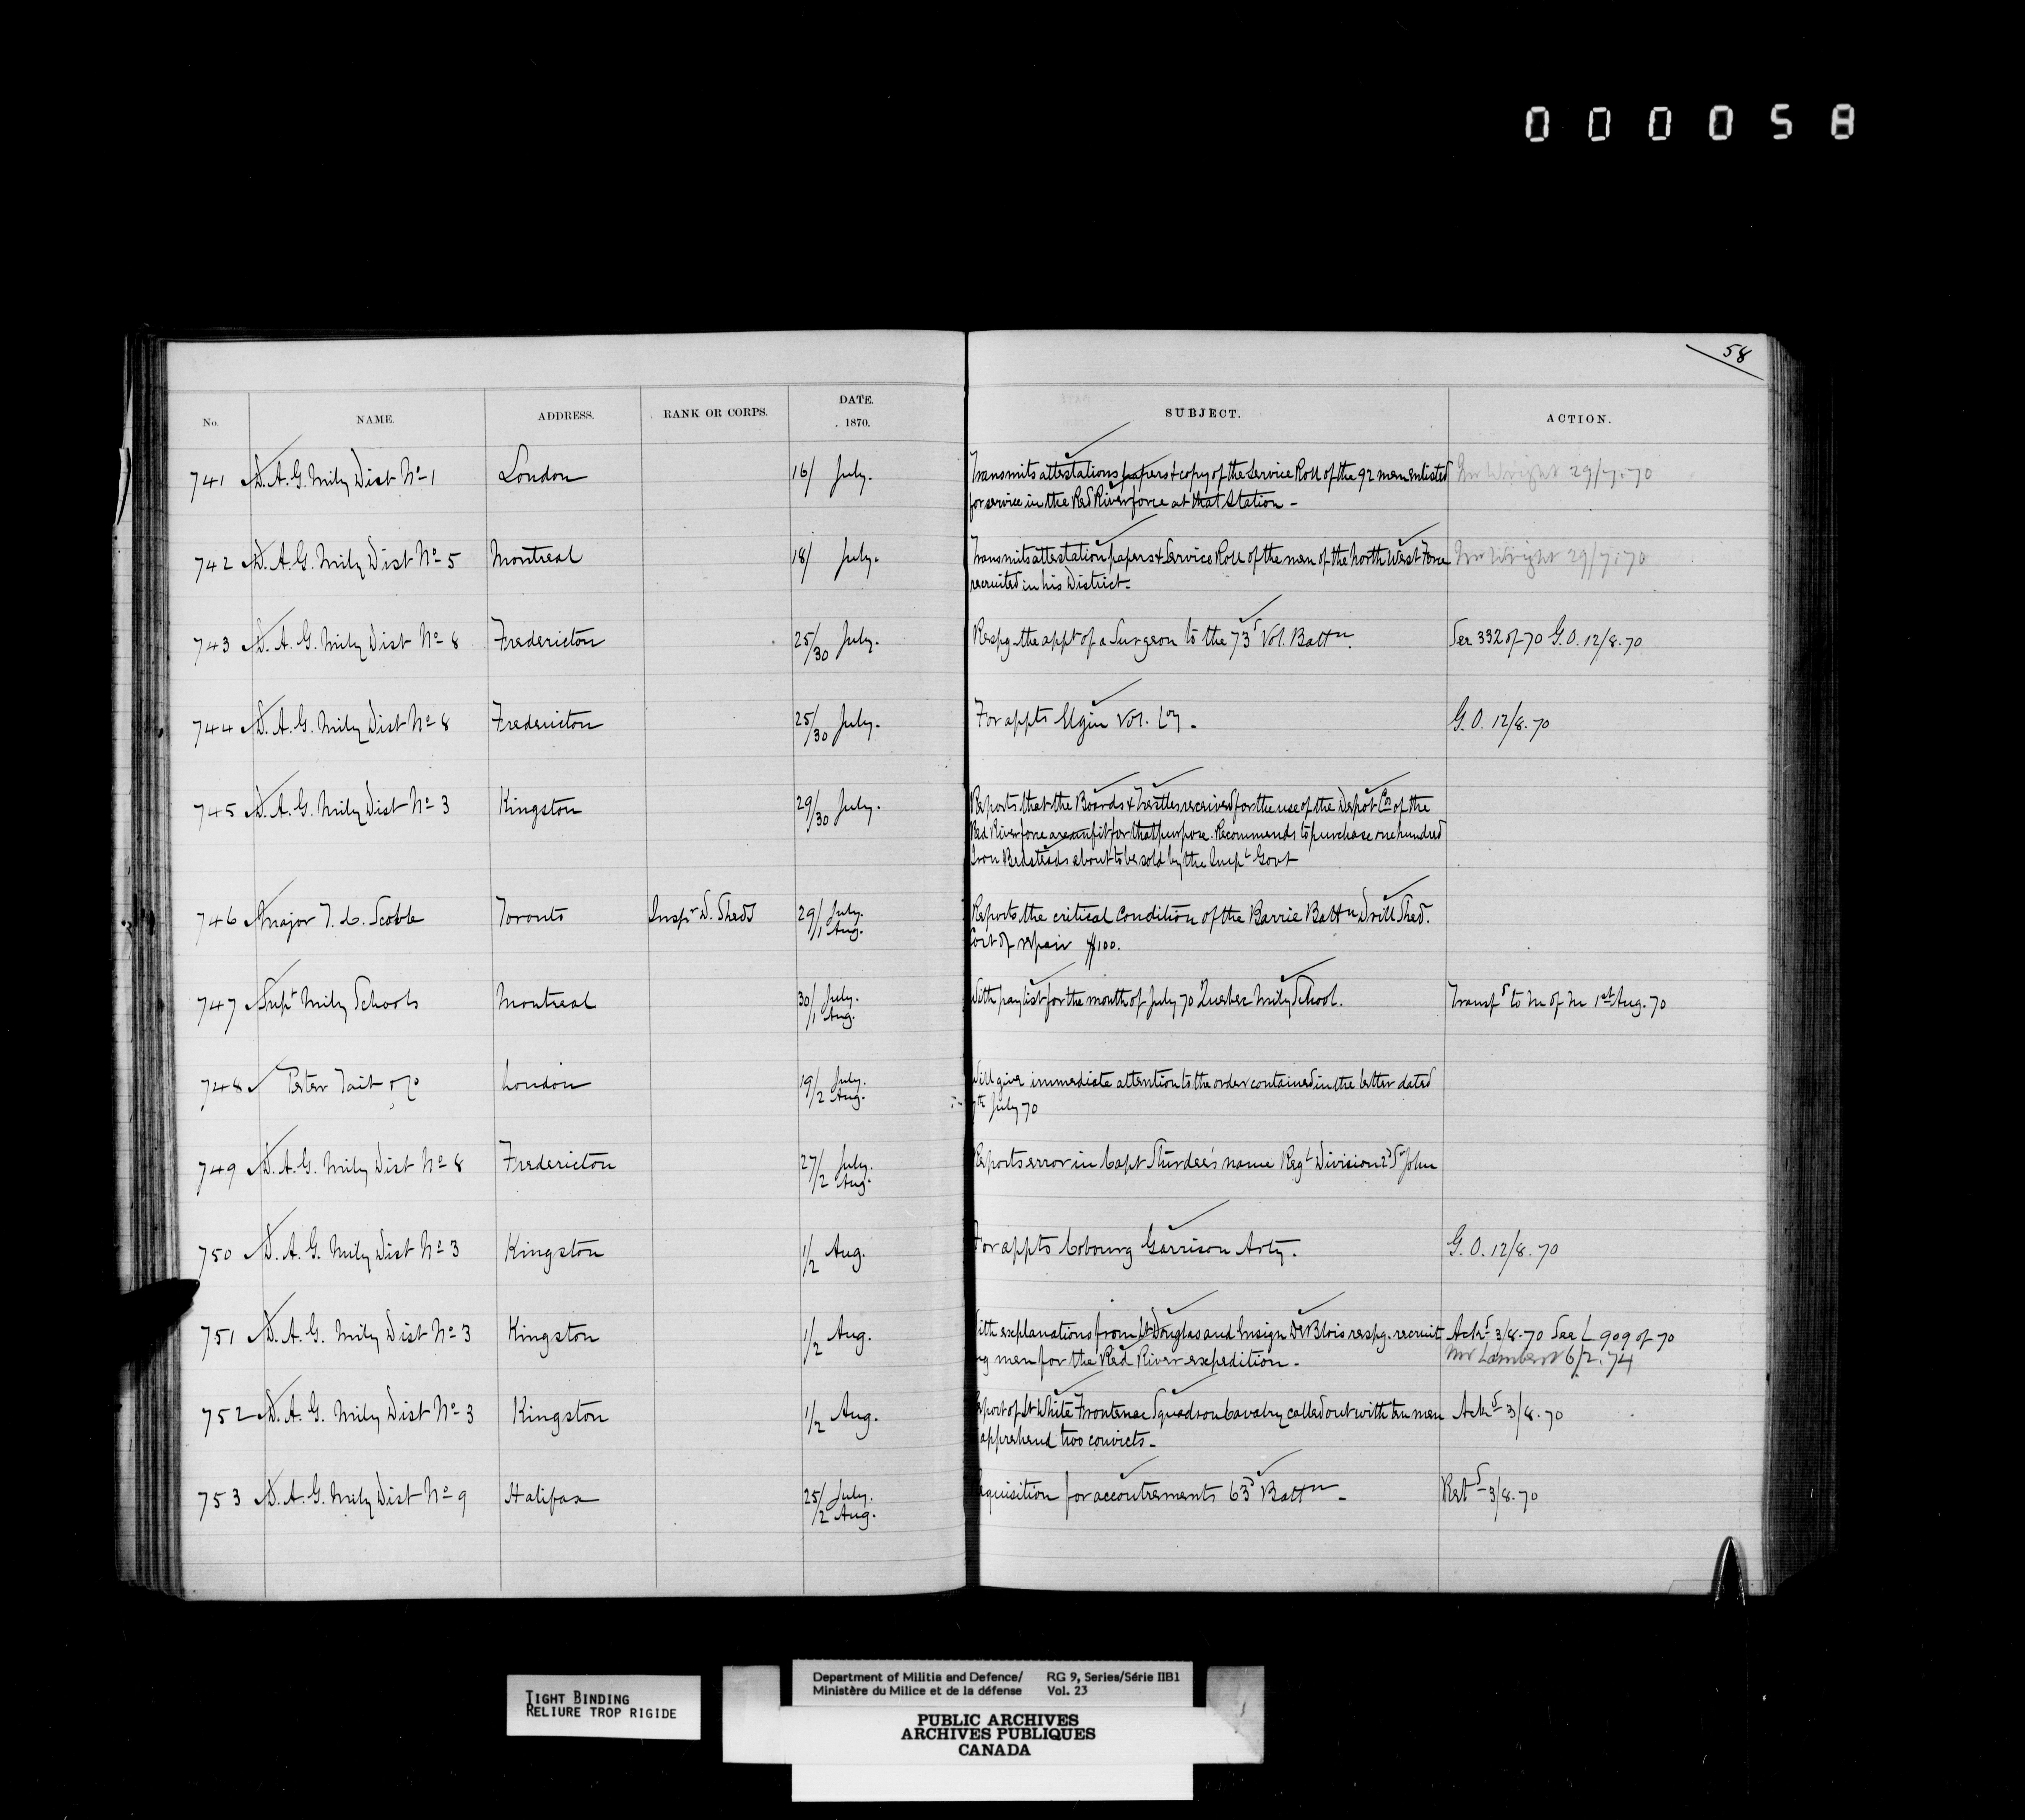 000058
58
No. NAME. ADDRESS. RANK OR CORPS. DATE. 1870. SUBJECT. ACTION.
741 D. A. G. Mily Dist No 1 London 16/ July. Transmits attestations papers & copy of the Service Roll of the 92 men enlisted Mr Wright 29/7.70
for service in the Red River force at that Station -
742 D. A. G. Mily Dist No 5 Montreal 18/ July. Transmits attestation papers & Service Roll of the men of the North West Force Mr Wright 29/7.70
recruited in his District -
743 D. A. G. Mily Dist No 8 Fredericton 25/30 July. Respg. the appt of a Surgeon to the 73d Vol. Battn. See 332 of 70 G.O. 12/8.70
744 D. A. G. Mily Dist No 8 Fredericton 25/30 July. For appts Elgin Vol. Coy. G.O. 12/8.70
745 D. A. G. Mily Dist No 3 Kingston 29/30 July. Reports that the Boards & Trestles received for the use of the Depot Co of the
Red River force are unfit for that purpose. Recommends to purchase one hundred
Iron Bedsteads about to be sold by the Impl Govt
746 Major T. C. Scoble Toronto Inspr D. Sheds 29/ July. Reports the critical Condition of the Barrie Battn Drill Shed.
/1 Aug. Cost of repair $100.
747 Supt Mily Schools Montreal 30/ July. With pay list for the month of July 70 Quebec Mily School. Transfd to M of M 1st Aug. 70
/1 Aug.
748 Peter Tait & Co London 19/ July. Will give immediate attention to the order contained in the letter dated
/2 Aug. 7th July 70
749 D. A. G. Mily Dist No 8 Fredericton 27/ July. Reports error in Capt Sturdee's name Regl Division 2d St John
/2 Aug.
750 D. A. G. Mily Dist No 3 Kingston 1/2 Aug. For appts Cobourg Garrison Arty. G.O. 12/8.70
751 D. A. G. Mily Dist No 3 Kingston 1/2 Aug. ith explanations from Lt Douglas and Ensign De Blois respg. recruit Ackd 3/8.70 See L 909 of 70
ng men for the Red River expedition - Mr Lambert 6/2.74
752 D. A. G. Mily Dist No 3 Kingston 1/2 Aug. eport of Lt White Frontenac Squadron Cavalry called out with ten men Ackd 3/8.70
apprehend two convicts -
753 D. A. G. Mily Dist No 9 Halifax 25/ July. equisition for accoutrements 63d Battn - Retd 3/8.70
/2 Aug.
TIGHT BINDING
RELIURE TROP RIGIDE
Department of Militia and Defence/ RG 9, Series/Série IIB1
Ministère du Milice et de la défense Vol. 23
PUBLIC ARCHIVES
ARCHIVES PUBLIQUES
CANADA